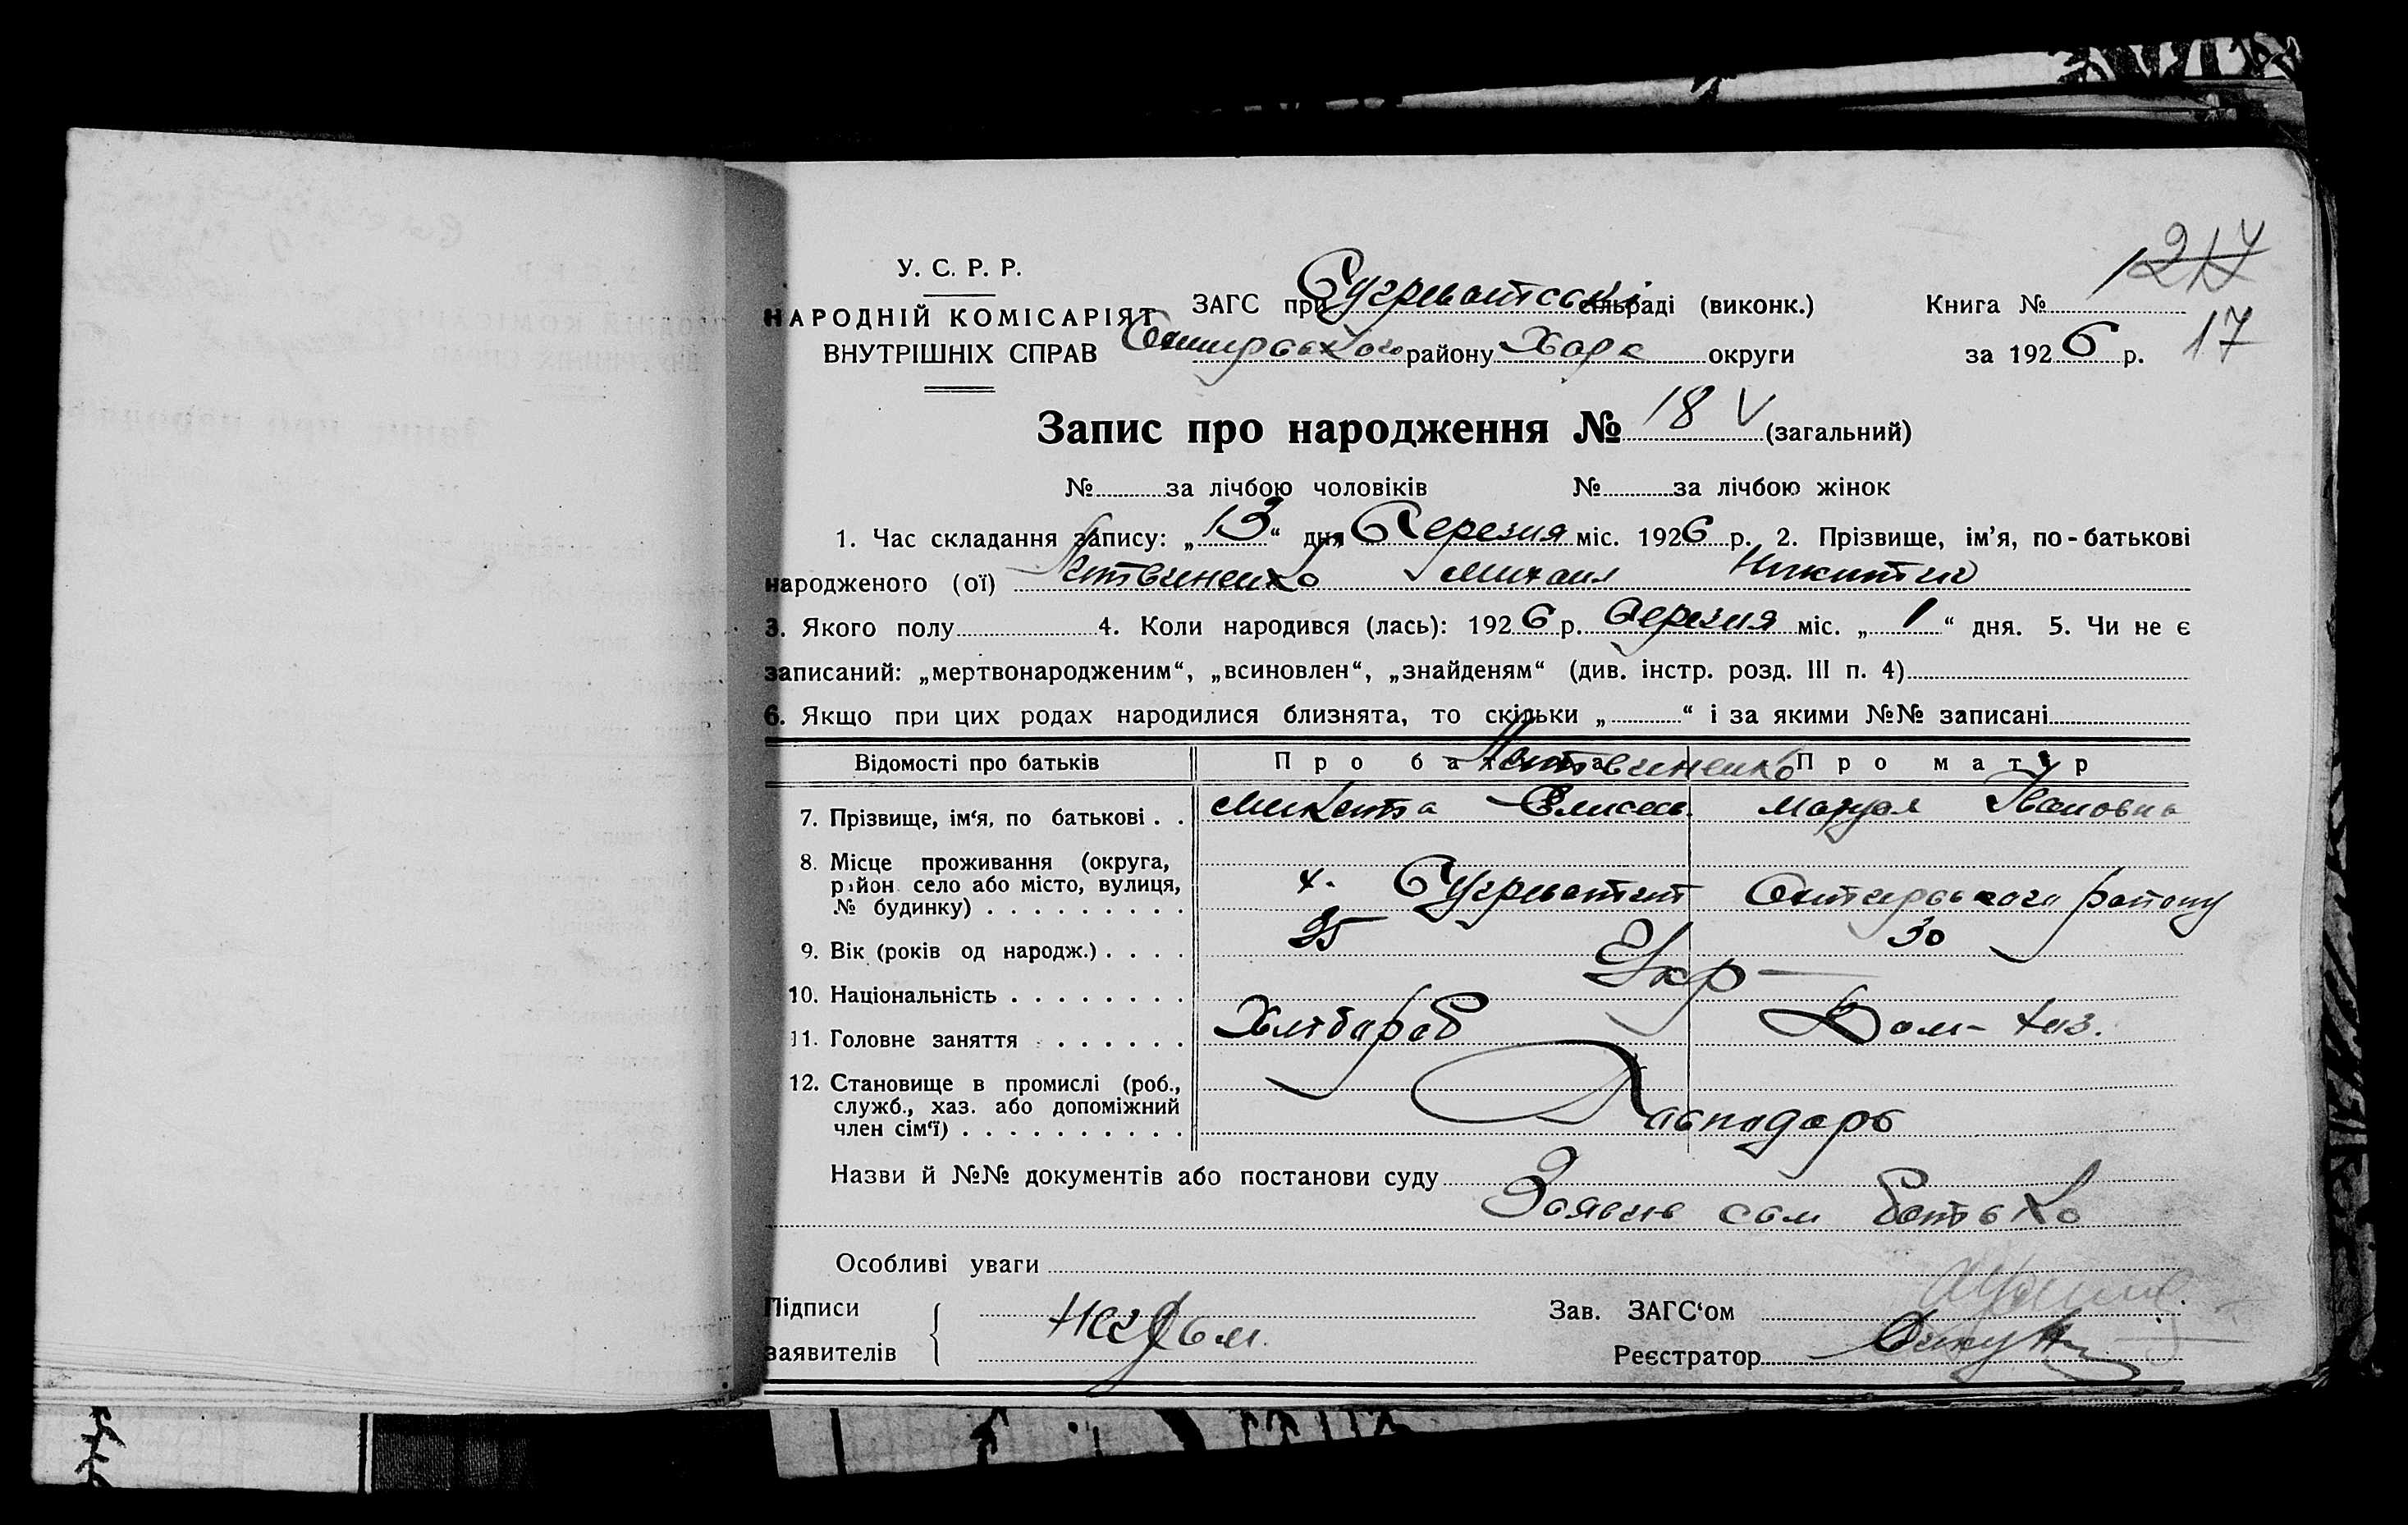 1217
У. С. Р. Р.
НАРОДНІЙ КОМІСАРІЯТ
ВНУТРІШНІХ СПРАВ
ЗАГС при сільраді (виконк.)
району Харк округи
Книга №
за 1926 р. 17
Запис про народження № 18 V (загальний)
№ за лічбою чоловіків № за лічбою жінок
1. Час складання запису: „13“ дня Березня міс. 1926 р. 2. Прізвище, ім’я, по-батькові
народженого (ої) Литвиненко Михаил Никитин
3. Якого полу 4. Коли народився (лась): 1926 р. березня міс. „1“ дня. 5. Чи не є
записаний: „мертвонародженим“, „всиновлен“, „знайденям“ (див. інстр. розд. III п. 4)
6. Якщо при цих родах народилися близнята, то скільки „ “ і за якими №№ записані
Відомості про батьків Про батька Про матір
Литвиненко
7. Прізвище, ім‘я, по батькові . . Микита Елисеев. Мария Івановна
8. Місце проживання (округа,
район село або місто, вулиця,
№ будинку) . . . . . . . . . х. району
9. Вік (років од народж.) . . . . 35 30
10. Національність . . . . . . . . Укр
11. Головне заняття . . . . . . Хлібороб Дом- хаз.
12. Становище в промислі (роб.,
служб., хаз. або допоміжний
член сім‘ї) . . . . . . . . . . Господарь
Назви й №№ документів або постанови суду
Заявив сам батько
Особливі уваги
Підписи
заявителів
Зав. ЗАГС‘ом
Реєстратор